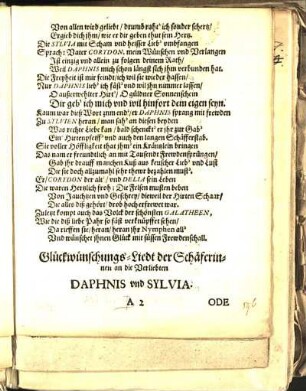 Von allen wird geliebt/ drumb raßt' ich sonder schertz/
Ergieb dich ihm/ wie er dir geben thut sein Hertz.
Die SYLVIA mit Scham vnd heisser Lieb' vmbfangen
Sprach: Vater CORYDON, mein Wünschen vnd Verlangen
Ist eintzig vnd allein zu folgen deinem Rath/
Weil DAPHNIS mich schon längst sich ihm verbunden hat.
Die Freyheit ist mir feind/ ich wil sie wieder hassen/
Nur DAPHNIS lieb' ich fäst/ vnd wil ihn nummer lassen/
O ausserwehlter Hirt/ O güldner Sonnenschein
Dir geb' ich mich vnd wil hinfort dein eigen seyn.
Kaum war diß Wort zum end/ er DAPHNIS sprang mit frewden
Zu SYLVIEN heran/ man sah' an diesen beyden
Was rechte Liebe kan/ bald schenckt' er ihr zur Gab'
Ein' Hirtenpfeiff' vnd auch den langen Schäfferstab.
Sie voller Höffligkeit that ihm' ein Kräntzlein bringen
Das nam er freundlich an mit Tausend Frewdensprüngen/
Gab ihr drauff manchen Kuß aus keuscher Lieb' vnd Lust
Die sie doch allzumahl sehr thewr bezahlen must'.
Er/ CORYDON der alt'/ vnd DELLA sein Leben
Die waren Hertzlich froh; Die Felsen musten beben
Von Jauchtzen vnd Geschrey/ dieweil der Hirten Schaar/
Die alles diß gehört/ drob hoch erfrewet war.
Zuletzt kompt auch das Volck der schönsten GALATHEEN,
Wie die diß liebe Pahr so fäst verknüpffet sehen/
Da rieffen sie/ heran/ heran ihr Nymphen all'
Vnd wünschet ihnen Glück mit süssen Frewdenschall.
Glückwünschungs-Liedt der Schäferin-
nen an die Verliebten
DAPHNIS vnd SYLVIA.
A 2
ODE